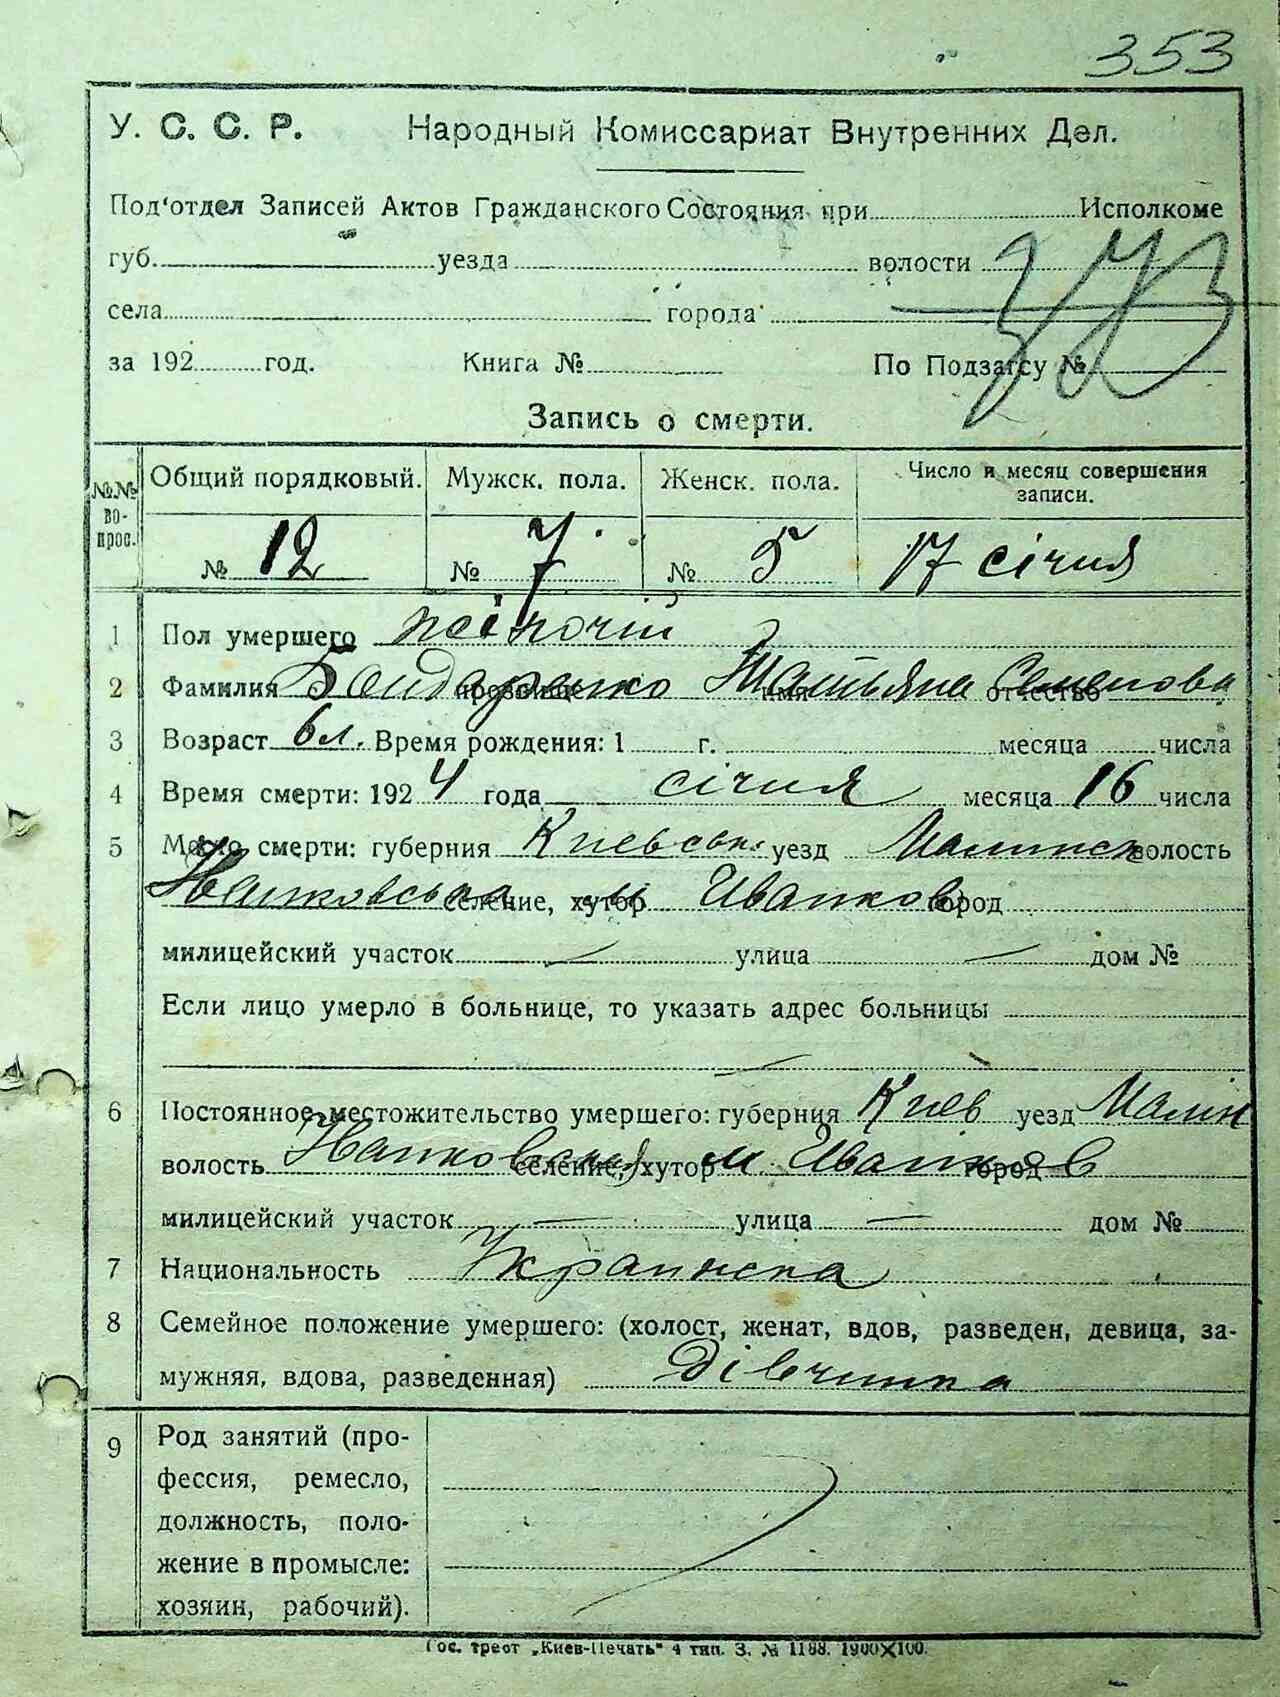 353
У. С. С. Р. Народный Комиссариат Внутренних Дел.
Под'отдел Записей Актов Гражданского Состояния при Исполкоме
губ. уезда волости
села города
за 192 год. Книга № По Подзагсу №
Запись о смерти.
№№ вопрос. Общий порядковый. Мужск. пола. Женск. пола. Число и месяц совершения записи.
№ 12 № 7 № 5 17 січня
1 Пол умершего жіночій
2 Фамилия Бондаренко прозвище имя Татьяна отчество Семенова
3 Возраст 6 л. Время рождения: 1 г. месяца числа
4 Время смерти: 1924 года січня месяца 16 числа
5 Место смерти: губерния Киевськ. уезд Малинск волость
Иванковська селение, хутор м Иванков город
милицейский участок — улица — дом №
Если лицо умерло в больнице, то указать адрес больницы
—
6 Постоянное местожительство умершего: губерния Киев уезд Малин
волость Иванковская селение, хутор м Иванков город
милицейский участок — улица — дом №
7 Национальность Украинска
8 Семейное положение умершего: (холост, женат, вдов, разведен, девица, за-
мужняя, вдова, разведенная) дівчинка
9 Род занятий (про-
фессия, ремесло,
должность, поло-
жение в промысле:
хозяин, рабочий).
Гос. трест „Киев-Печать" 4 тип. З. № 1198. 1900×100.